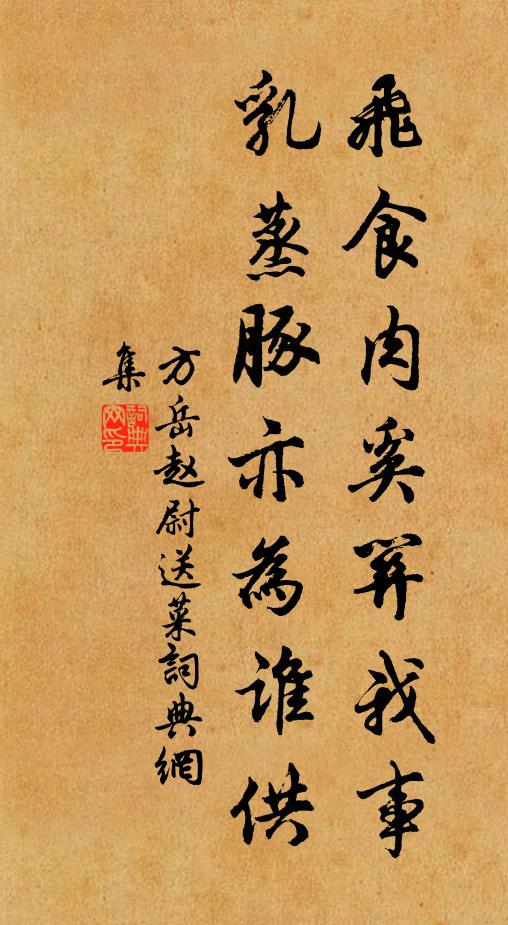 飛食肉奚關我事
乳蒸豚亦為誰供
方岳趙尉送菜詞典網
集
詞典网印